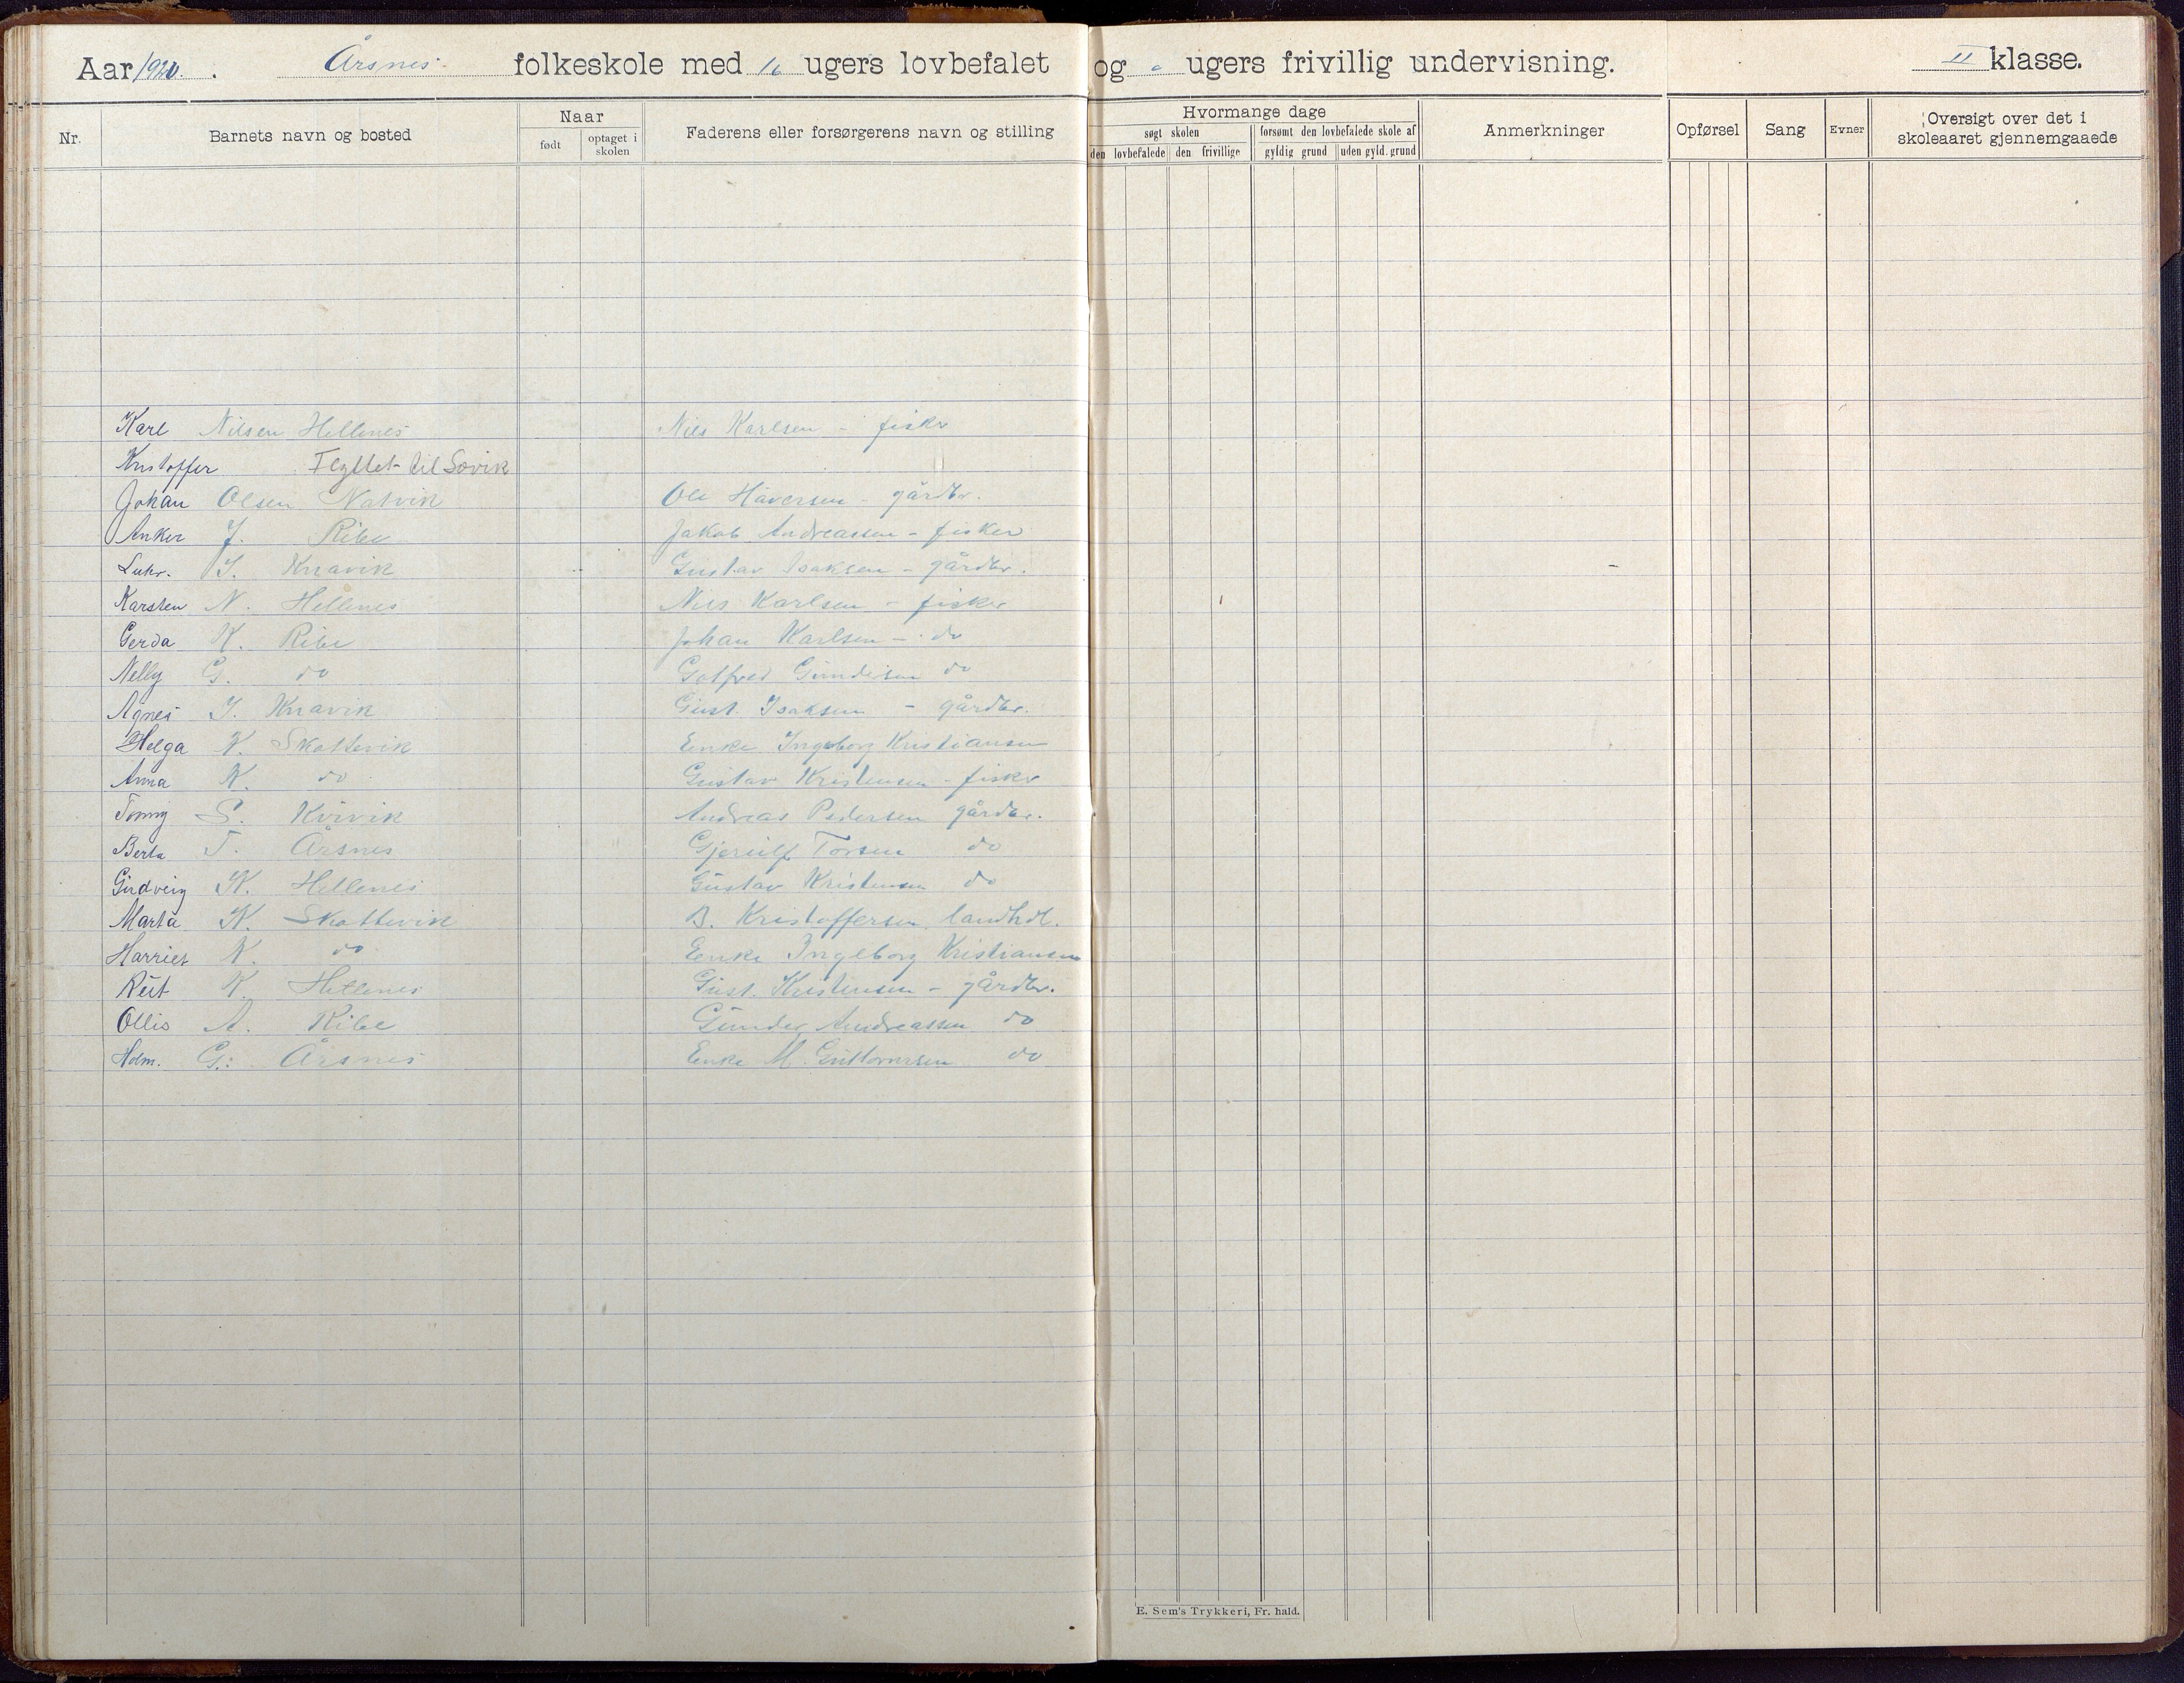 Aar 1920. Årsnes folkeskole med 16 ugers lovbefalet og ugers frivillig undervisning. II klasse.
Nr. Barnets navn og bosted Naar født optaget i skolen Faderens eller forsørgerens navn og stilling Hvormange dage søgt skolen den lovbefalede den frivillige forsømt den lovbefalede skole af gyldig grund uden gyld. grund Anmerkninger Opførsel Sang Evner Oversigt over det i skoleaaret gjennemgaaede
Karl Nilsen Hellenes Nils Karlsen - fisker
Kristoffer Flyttet til Søvik
Johan Olsen Natvik Ole Håversen - gårdbr.
Anker J. Ribe Jakob Andreassen - fisker
Luhr. I. Knavik Gustav Isaksen - gårdbr.
Karsten N. Hellenes Nils Karlsen - fisker
Gerda K. Ribe Johan Karlsen - do
Nelly G. do Gotfred Gundersen do
Agnes I. Knavik Gust. Isaksen - gårdbr.
Helga K. Skottevik Enke Ingeborg Kristiansen
Anna K. do Gustav Kristensen - fisker
Tonny S. Kvivik Andreas Pedersen gårdbr.
Berta T. Årsnes Gjerulf Torsen do
Gudveig K. Hellenes Gustav Kristensen do
Marta K. Skottevik B. Kristoffersen landhdl.
Harriet K. do Enke Ingeborg Kristiansen
Rut K. Hellenes Gust. Kristensen - gårdbr.
Ollis A. Ribe Gunder Andreassen do
Holm. G. Årsnes Enke M. Guttormsen do
E. Sem's Trykkeri, Fr. hald.